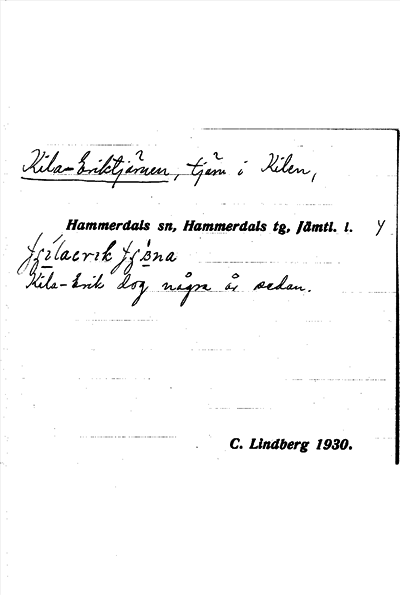 Kila-Eriktjärnen, tjärn i Kilen,
Hammerdals sn, Hammerdals tg, Jämtl. l. Y
Kila-Erik dog några år sedan.
C. Lindberg 1930.